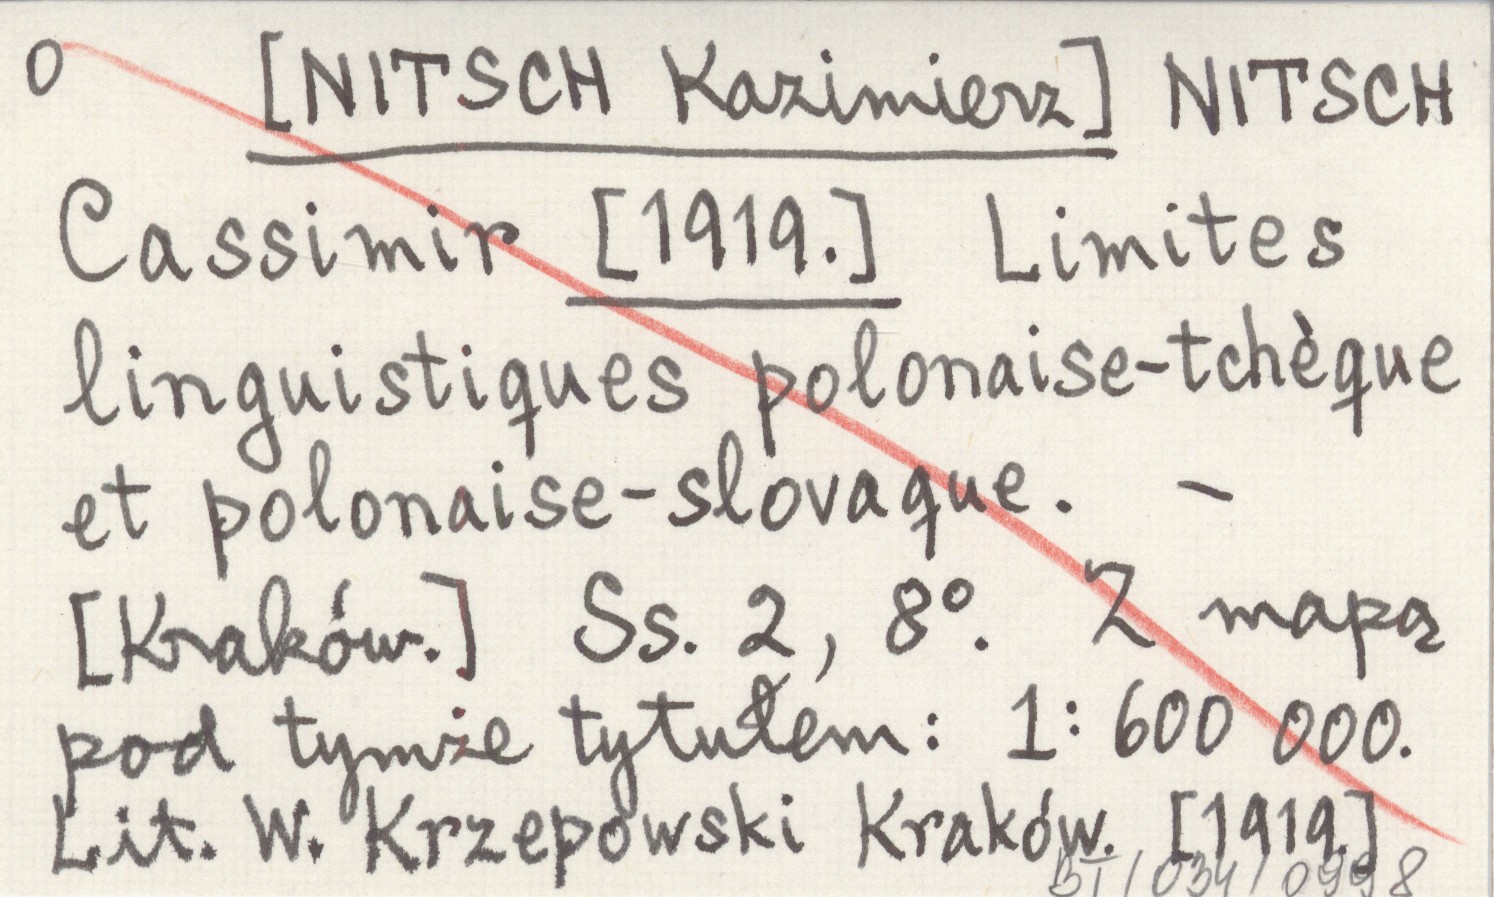 0 [NITSCH Kazimierz] NITSCH
Cassimir [1919.] Limites
linguistiques polonaise-tchèque
et polonaise-slovaque. –
[Kraków.] Ss. 2, 8°. Z mapą
pod tymże tytułem: 1: 600 000.
Lit. W. Krzepowski Kraków. [1919.]
BT/034/0998